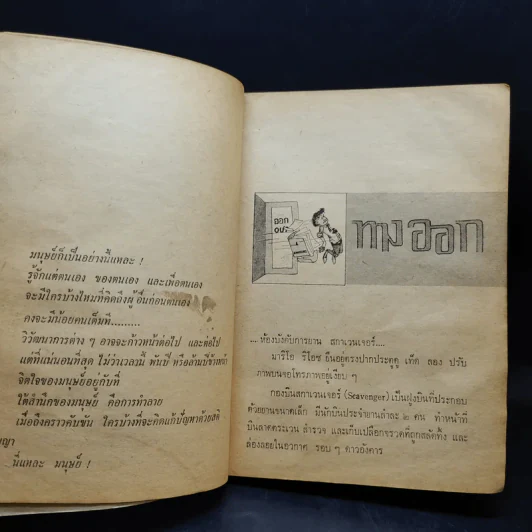 มนุษย์ก็เป็นอย่างนี้แหละ !
รู้จักแต่ตนเอง ของตนเอง และเพื่อตนเอง
จะมีใครบ้างไหมที่คิดถึงผู้อื่นก่อนตนเอง
คงจะมีน้อยคนเต็มที.........
วิวัฒนาการต่าง ๆ อาจจะก้าวหน้าต่อไป และต่อไป
แต่ที่แน่นอนที่สุด ไม่ว่าเวลานี้ พันปี หรือล้านปีข้างหน้า
จิตใจของมนุษย์อยู่กับที่
ใต้สำนึกของมนุษย์ คือการทำลาย
เมื่อถึงคราวคับขัน ใครบ้างที่จะคิดแก้ปัญหาด้วยสติ
ญา
นี่แหละ มนุษย์ !
ออก
ทางออก
... ห้องบังคับการยาน สกาเวนเจอร์....
มาริโอ ริโอซ ยืนอยู่ตรงปากประตู เท็ด ลอง ปรับ
ภาพบนจอโทรภาพอยู่เงียบ ๆ
กองบินสกาเวนเจอร์ (Scavenger) เป็นฝูงบินที่ประกอบ
ด้วยยานขนาดเล็ก มีนักบินประจำยานลำละ ๒ คน ทำหน้าที่
บินลาดตระเวน สำรวจ และเก็บเปลือกจรวดที่ถูกสลัดทิ้ง และ
ล่องลอยในอวกาศ รอบ ๆ ดาวอังคาร